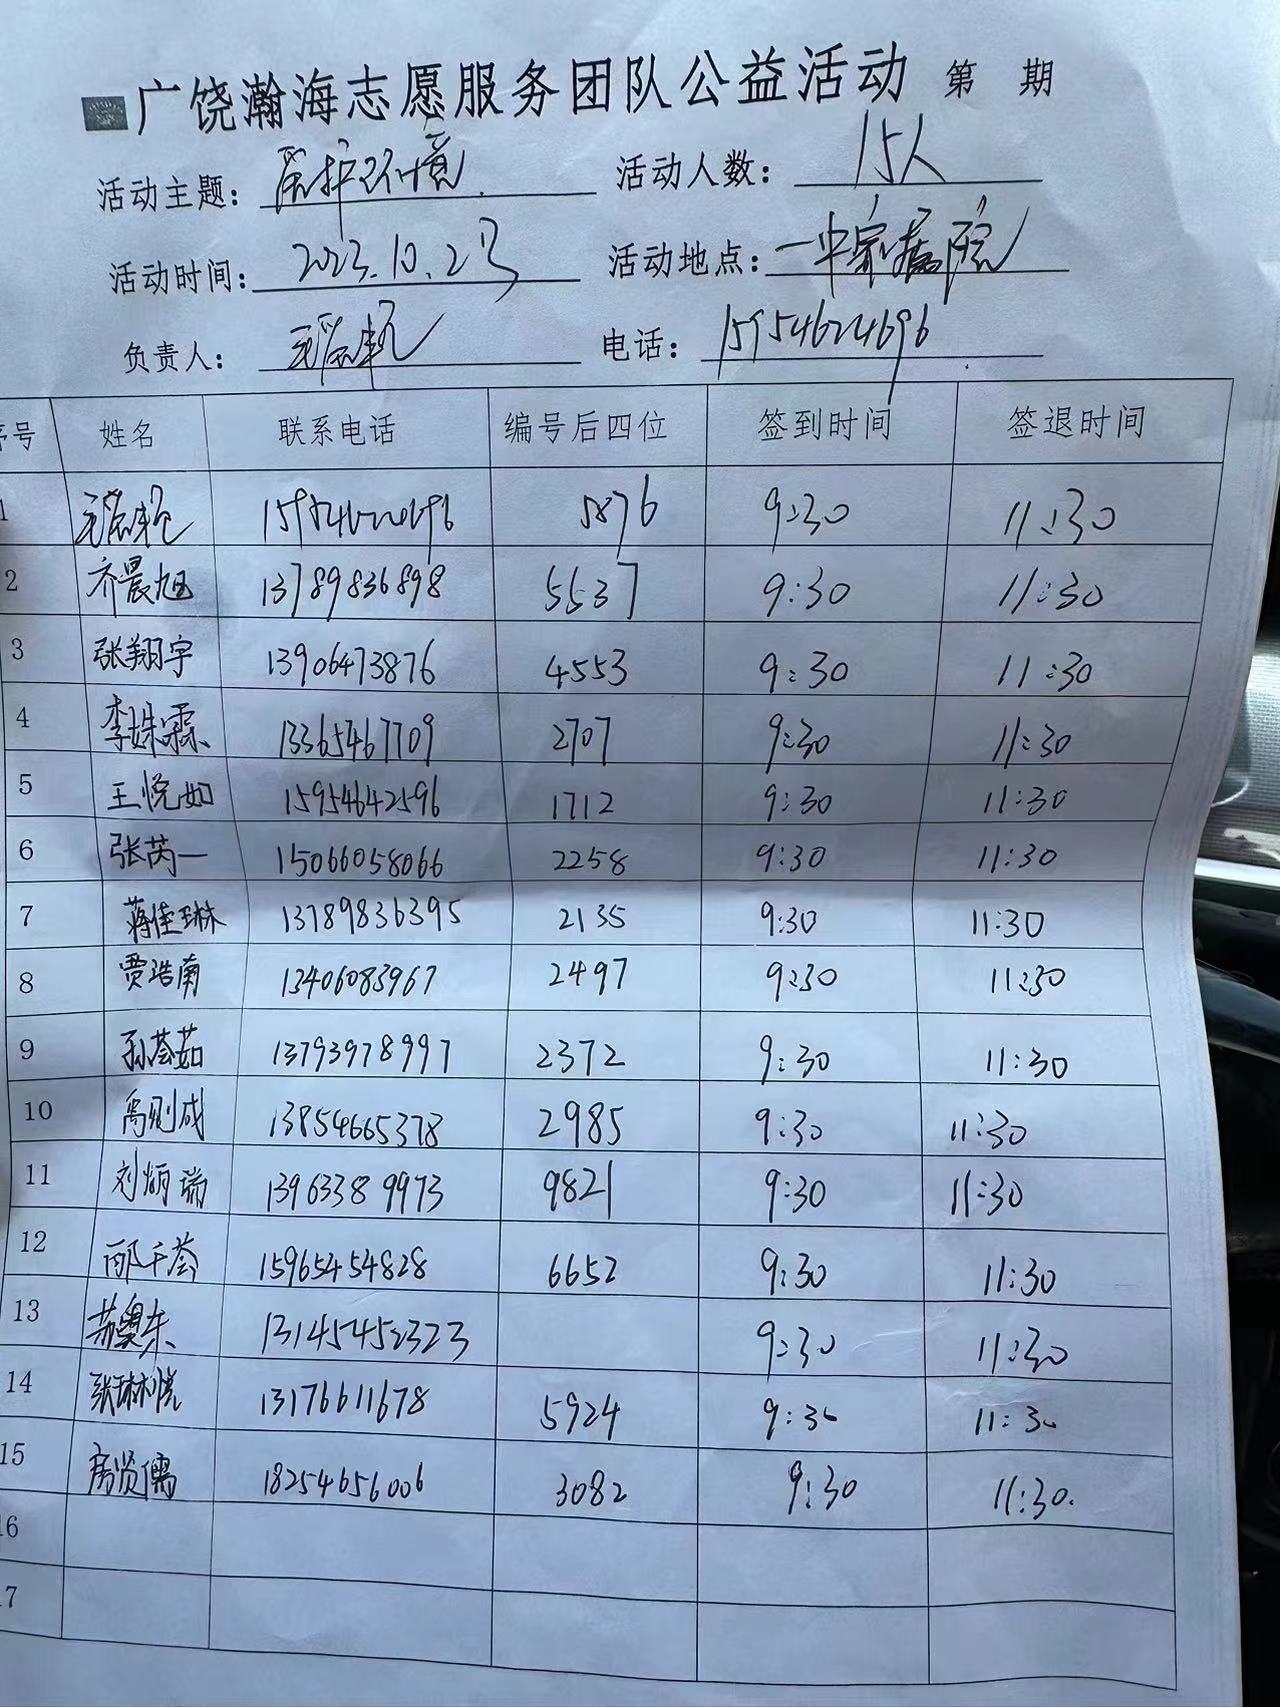 广饶瀚海志愿服务团队公益活动 第 期
活动主题: 保护环境 活动人数: 15人
活动时间: 2023.10.2号 活动地点: 一中家属院
负责人: 电话: 15954624696
序号 姓名 联系电话 编号后四位 签到时间 签退时间
1 5876 9:30 11:30
2 齐晨旭 13789836898 5537 9:30 11:30
3 张翔宇 13906473876 4553 9:30 11:30
4 李姝霖 13365467709 2707 9:30 11:30
5 王悦如 15954642596 1712 9:30 11:30
6 张芮一 15066058066 2258 9:30 11:30
7 蒋佳琳 13789836395 2135 9:30 11:30
8 贾浩南 13406083967 2497 9:30 11:30
9 孙荟茹 13793978997 2372 9:30 11:30
10 禹则成 13854665378 2985 9:30 11:30
11 刘炳瑞 13963389973 9821 9:30 11:30
12 邴千荟 15965454828 6652 9:30 11:30
13 苏奥东 13145452323 9:30 11:30
14 张琳悦 13176611678 5924 9:30 11:30
15 房贤儒 18254656006 3082 9:30 11:30
16
17